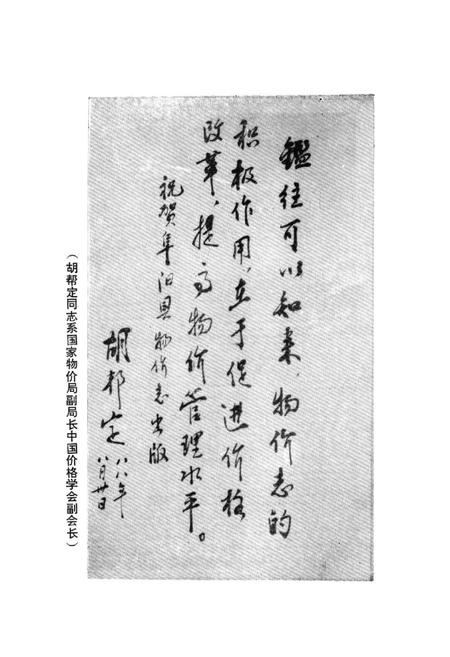 鑑往可以知来，物价志的
积极作用，在于促进价格
改革，提高物价管理水平。
祝贺县物价志出版
胡邦定
八八年
八月廿日
（胡帮定同志系国家物价局副局长中国价格学会副会长）